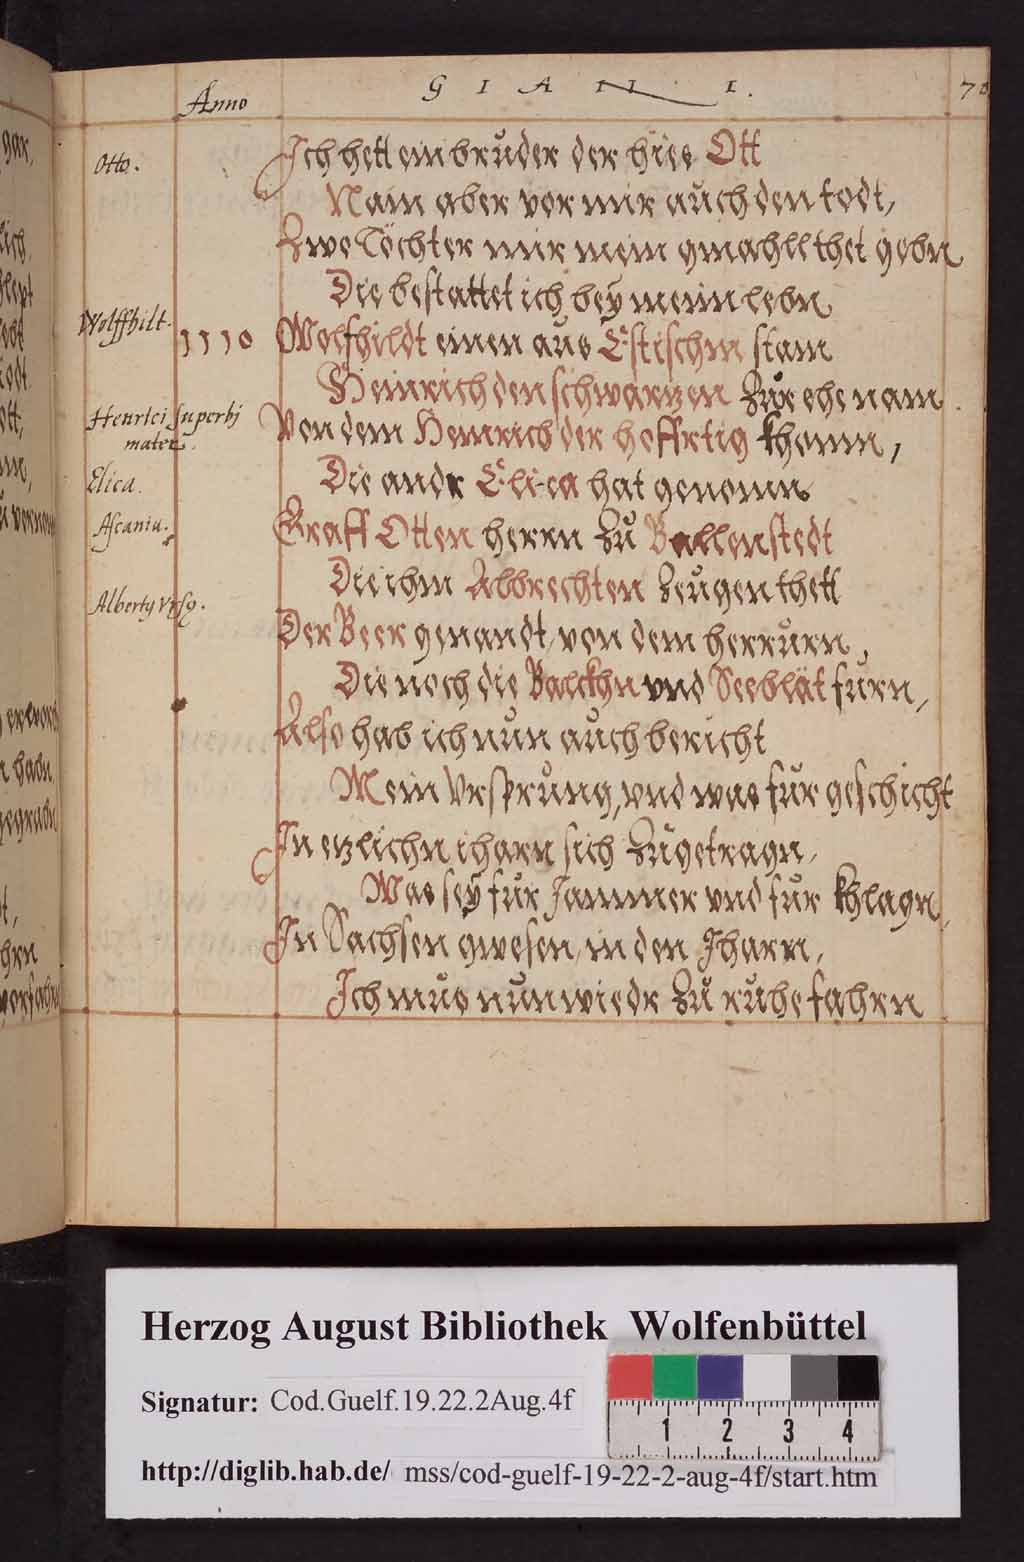 Anno
G I A N I.
70
Otto.
Ich hett ein brůder der hies Ott
Nam aber vor mir aůch den todt,
Zwo Töchter mir mein gmahll thet gebn
Die bestattet ich bey meim lebn
Wolffhilt.
1110
Wolfhildt einen aus Estischm stam
Heinrich den schwarzen Zůr ehe nam.
Henrici superbj
mater.
Von dem Heinrich der hoffrtig khomn,
Elica.
Die andr Elica hat genomn
Ascaniu.
Graff Otten herrn Zů Ballenstedt
Die ihm Albrechten Zeůgen thett
Alberty Vrsy.
Der Beer genandt, von dem herrůrn,
Die noch die Balckhn vnd Seeblät fůrn,
Also hab ich nůn aůch bericht
Mein Vrsprůng, vnd was fůr geschicht
In etzlichn iharn sich Zůgetragn,
Was sey fůr Jammer vnd fůr khlagn,
In Sachsen gwesen, in den Jharn,
Ich můs nůn wiedr Zů růhe fahrn
Herzog August Bibliothek Wolfenbüttel
Signatur: Cod.Guelf.19.22.2Aug.4f
1 2 3 4
http://diglib.hab.de/ mss/cod-guelf-19-22-2-aug-4f/start.htm